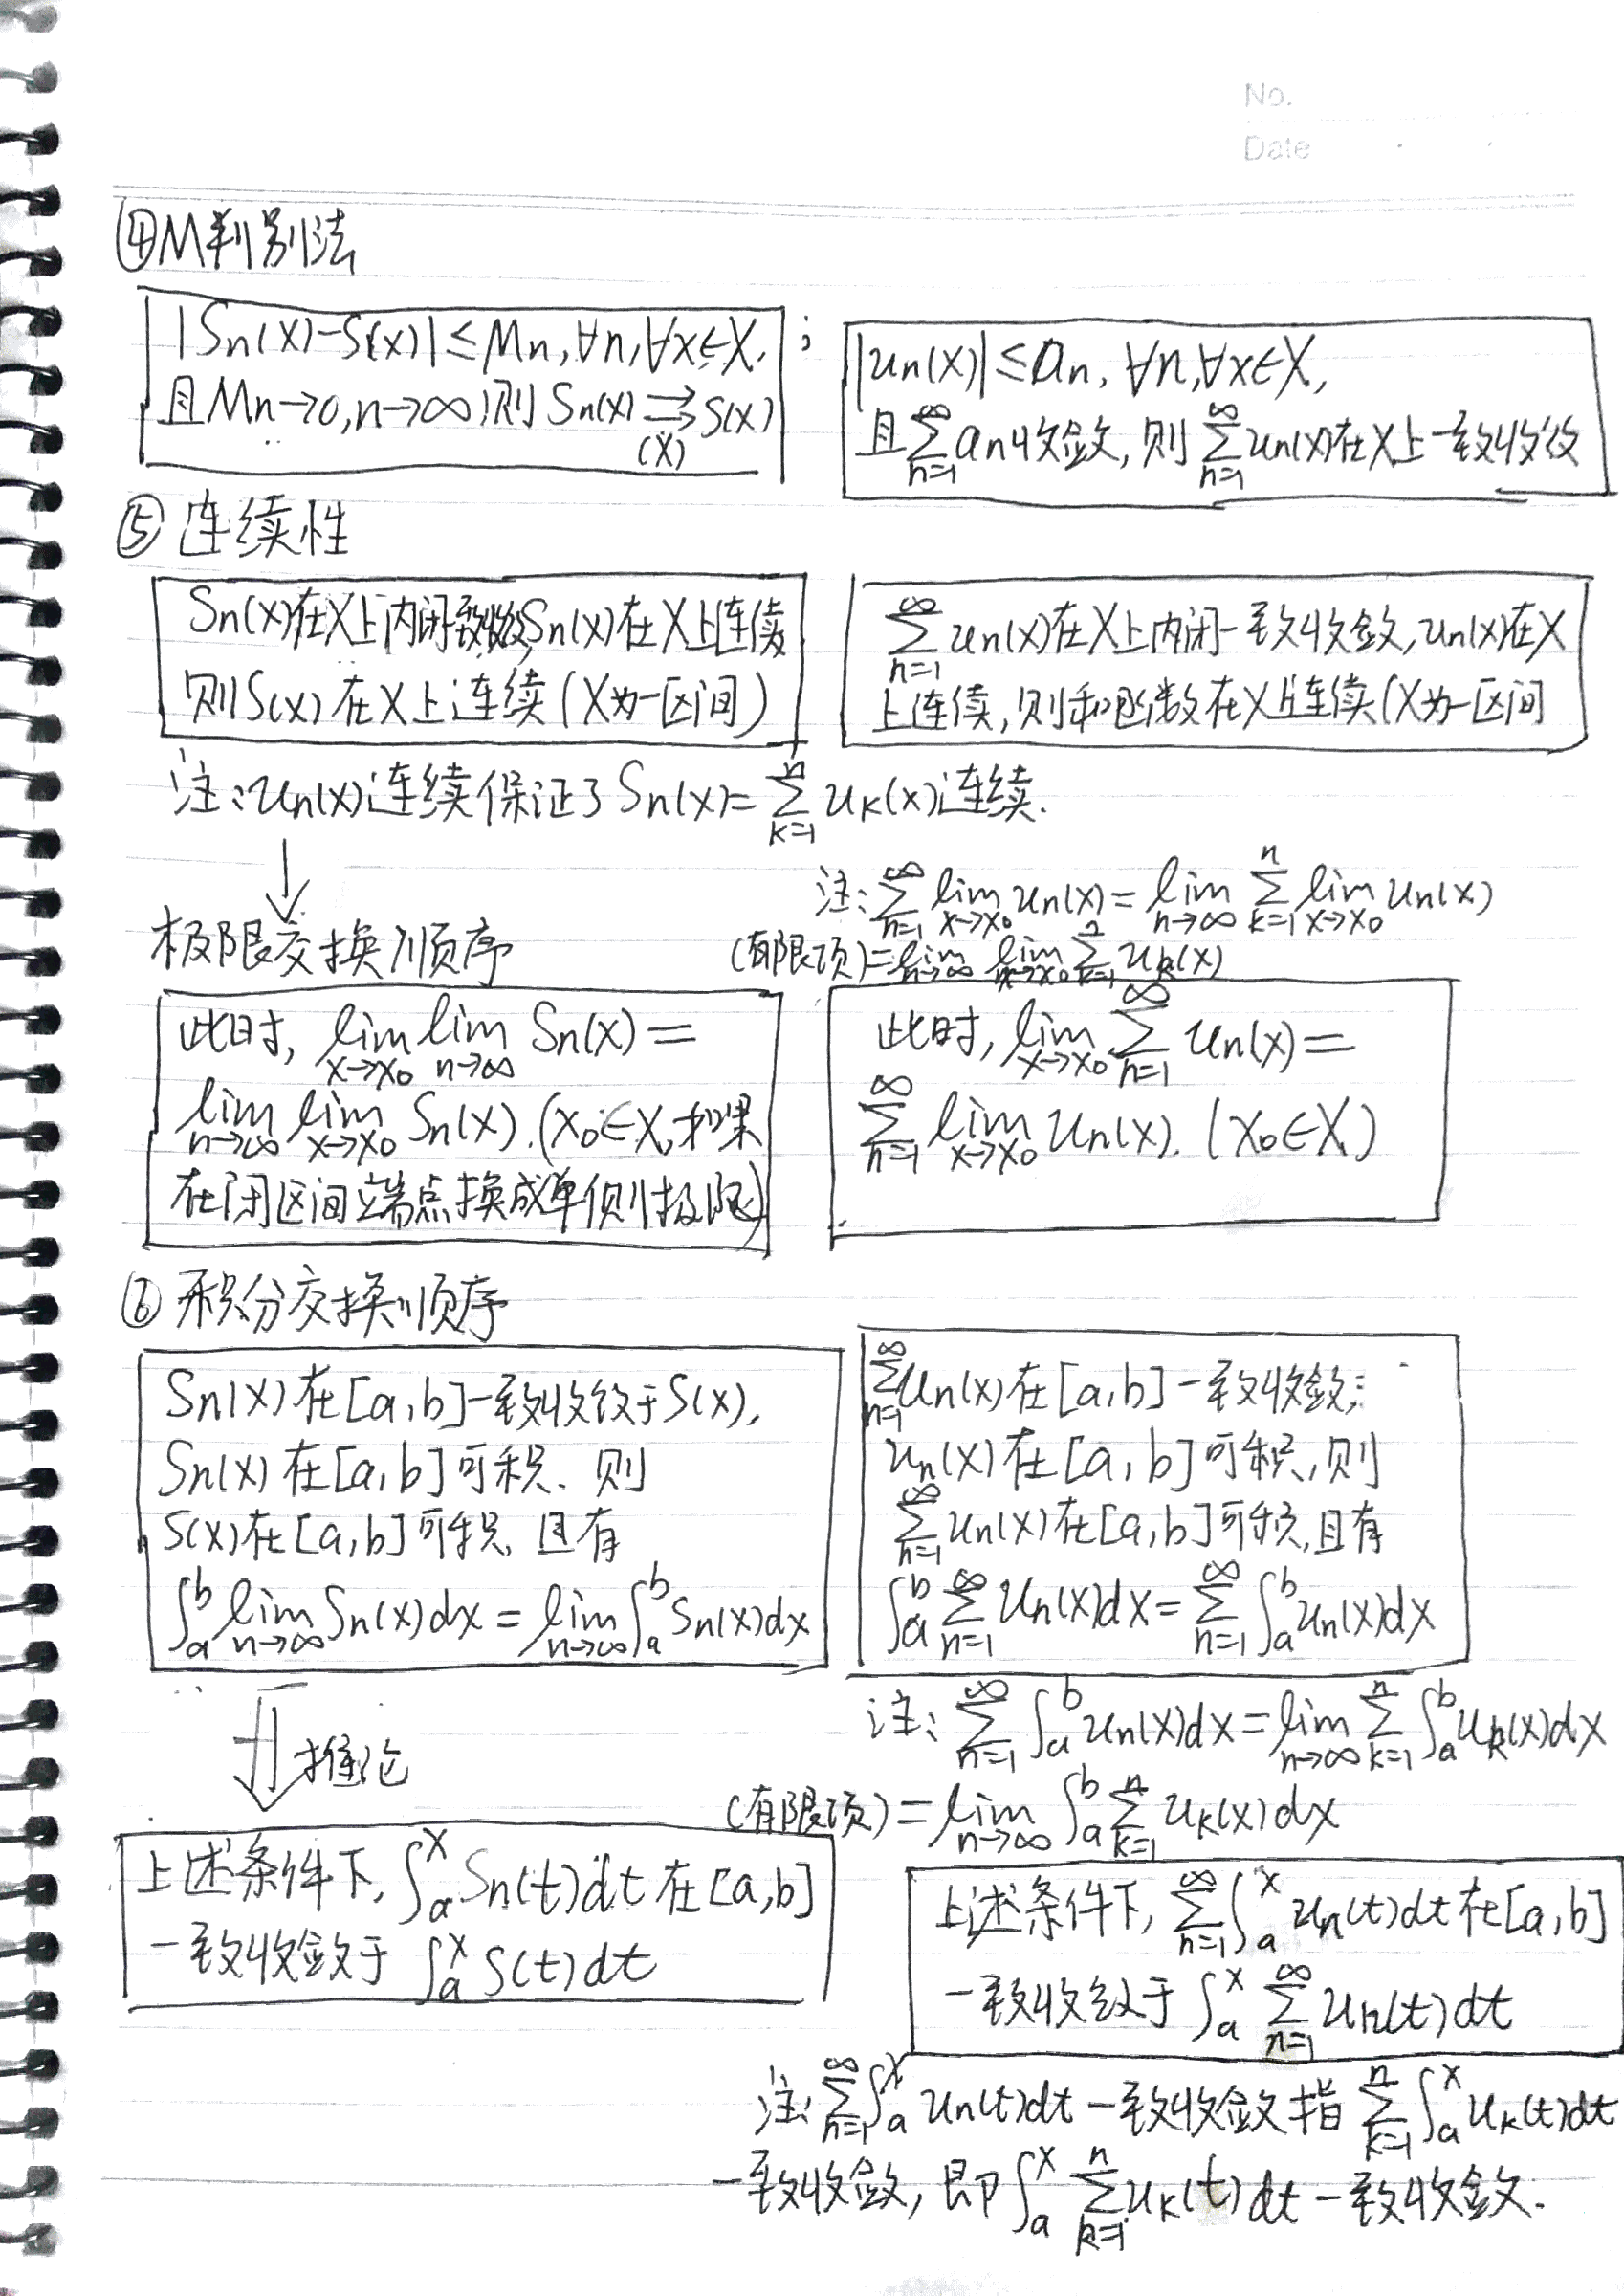 No.
Date
④M判别法
|Sn(x)-S(x)|≤Mn,∀n,∀x∈X,
且Mn→0,n→∞,则 Sn(x)⇉S(x)
(X)
;
|un(x)|≤an, ∀n,∀x∈X,
且∑_{n=1}^{∞}an收敛,则∑_{n=1}^{∞}un(x)在X上一致收敛
⑤连续性
Sn(x)在X上内闭一致收敛,Sn(x)在X上连续
则S(x)在X上连续(X为一区间)
∑_{n=1}^{∞}un(x)在X上内闭一致收敛,un(x)在X
上连续,则和函数在X上连续(X为一区间
注:un(x)连续保证了Sn(x)=∑_{k=1}^{n}uk(x)连续.
↓
极限交换顺序
注:∑_{n=1}^{∞}lim_{x→x0}un(x)=lim_{n→∞}∑_{k=1}^{n}lim_{x→x0}un(x)
(有限项)=lim_{n→∞}lim_{x→x0}∑_{k=1}^{n}uk(x)
此时,lim_{x→x0}lim_{n→∞}Sn(x)=
lim_{n→∞}lim_{x→x0}Sn(x).(x0∈X,如果
在闭区间端点换成单侧极限)
此时,lim_{x→x0}∑_{n=1}^{∞}un(x)=
∑_{n=1}^{∞}lim_{x→x0}un(x).(x0∈X)
⑥积分交换顺序
Sn(x)在[a,b]一致收敛于S(x),
Sn(x)在[a,b]可积.则
S(x)在[a,b]可积,且有
∫_a^b lim_{n→∞}Sn(x)dx=lim_{n→∞}∫_a^b Sn(x)dx
∑_{n=1}^{∞}un(x)在[a,b]一致收敛;
un(x)在[a,b]可积,则
∑_{n=1}^{∞}un(x)在[a,b]可积,且有
∫_a^b∑_{n=1}^{∞}un(x)dx=∑_{n=1}^{∞}∫_a^b un(x)dx
注:∑_{n=1}^{∞}∫_a^b un(x)dx=lim_{n→∞}∑_{k=1}^{n}∫_a^b uk(x)dx
(有限项)=lim_{n→∞}∫_a^b∑_{k=1}^{n}uk(x)dx
推论
上述条件下,∫_a^x Sn(t)dt在[a,b]
一致收敛于∫_a^x S(t)dt
上述条件下,∑_{n=1}^{∞}∫_a^x un(t)dt在[a,b]
一致收敛于∫_a^x∑_{n=1}^{∞}un(t)dt
注:∑_{n=1}^{∞}∫_a^x un(t)dt一致收敛指∑_{k=1}^{n}∫_a^x uk(t)dt
一致收敛,即∫_a^x∑_{k=1}^{n}uk(t)dt一致收敛.